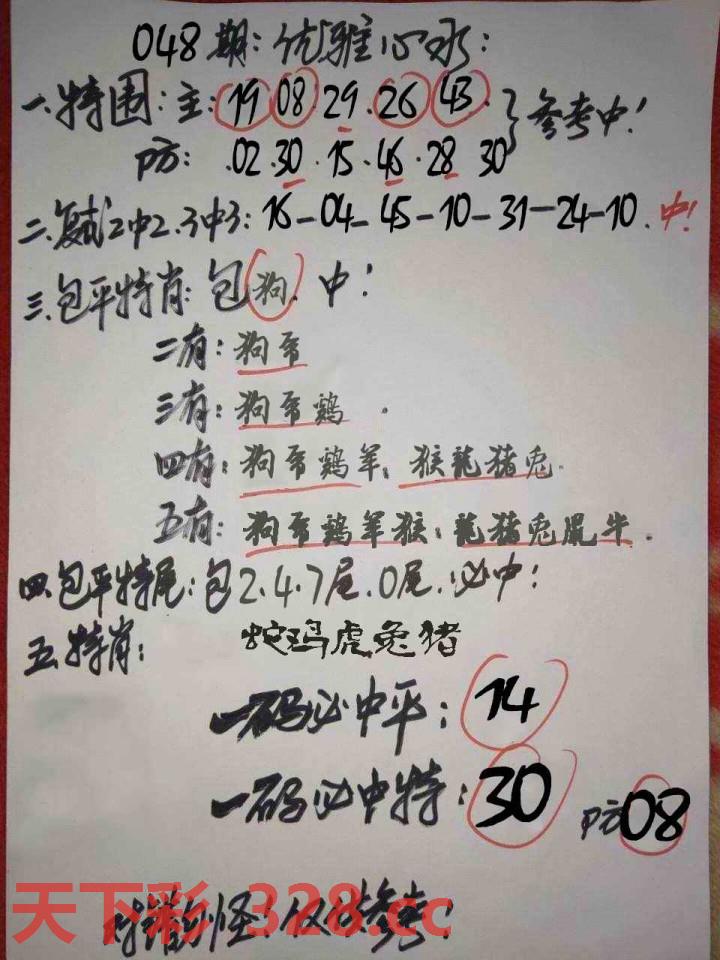 048期:优雅心水:
一.特围:主:19 08.29.26 43.}参考中!
防:.02.30.15.46.28 30
二.复式2中2.3中3:16-04-45-10-31-24-10.中!
三.包平特肖:包狗.中!
二有:狗
三有:狗 鸡.
四有:狗 鸡羊,猴龍猪兔.
五有:狗 鸡羊猴,龍猪兔鼠牛.
四.包平特尾:包2.4.7尾.0尾.必中!
五.特肖:蛇鸡虎兔猪
一码必中平:14
一码必中特:30 防08
错勿怪!仅供参考!
天下彩 328.cc